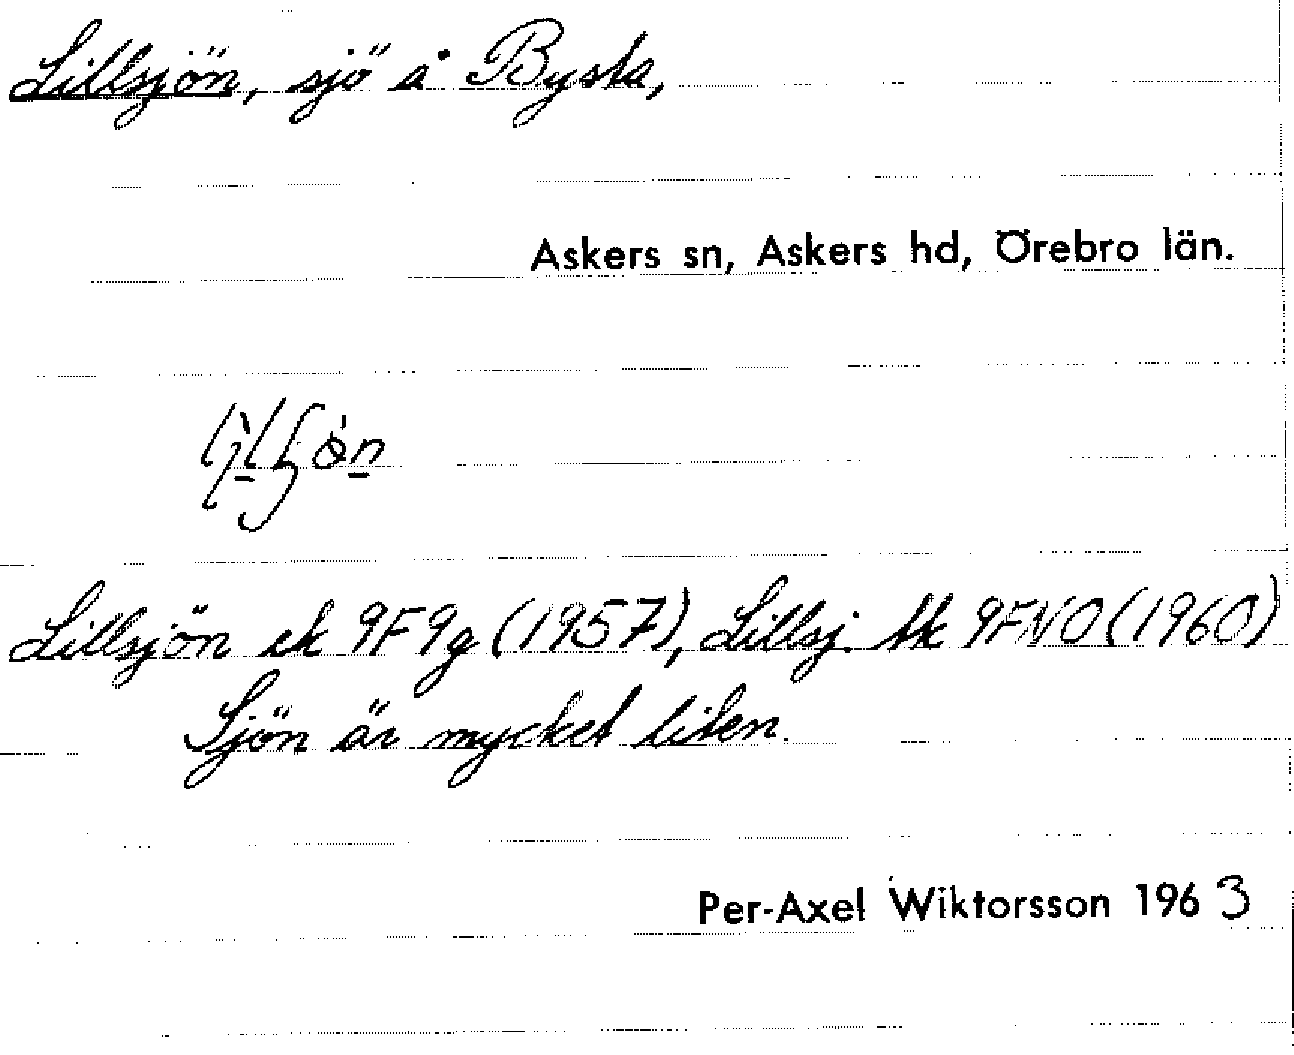 Lillsjön, sjö å Bysta,
Askers sn, Askers hd, Örebro län.
Lillsjön ek 9F9g (1957), Lillsj. tk 9FNO (1960)
Sjön är mycket liten.
Per-Axel Wiktorsson 1963